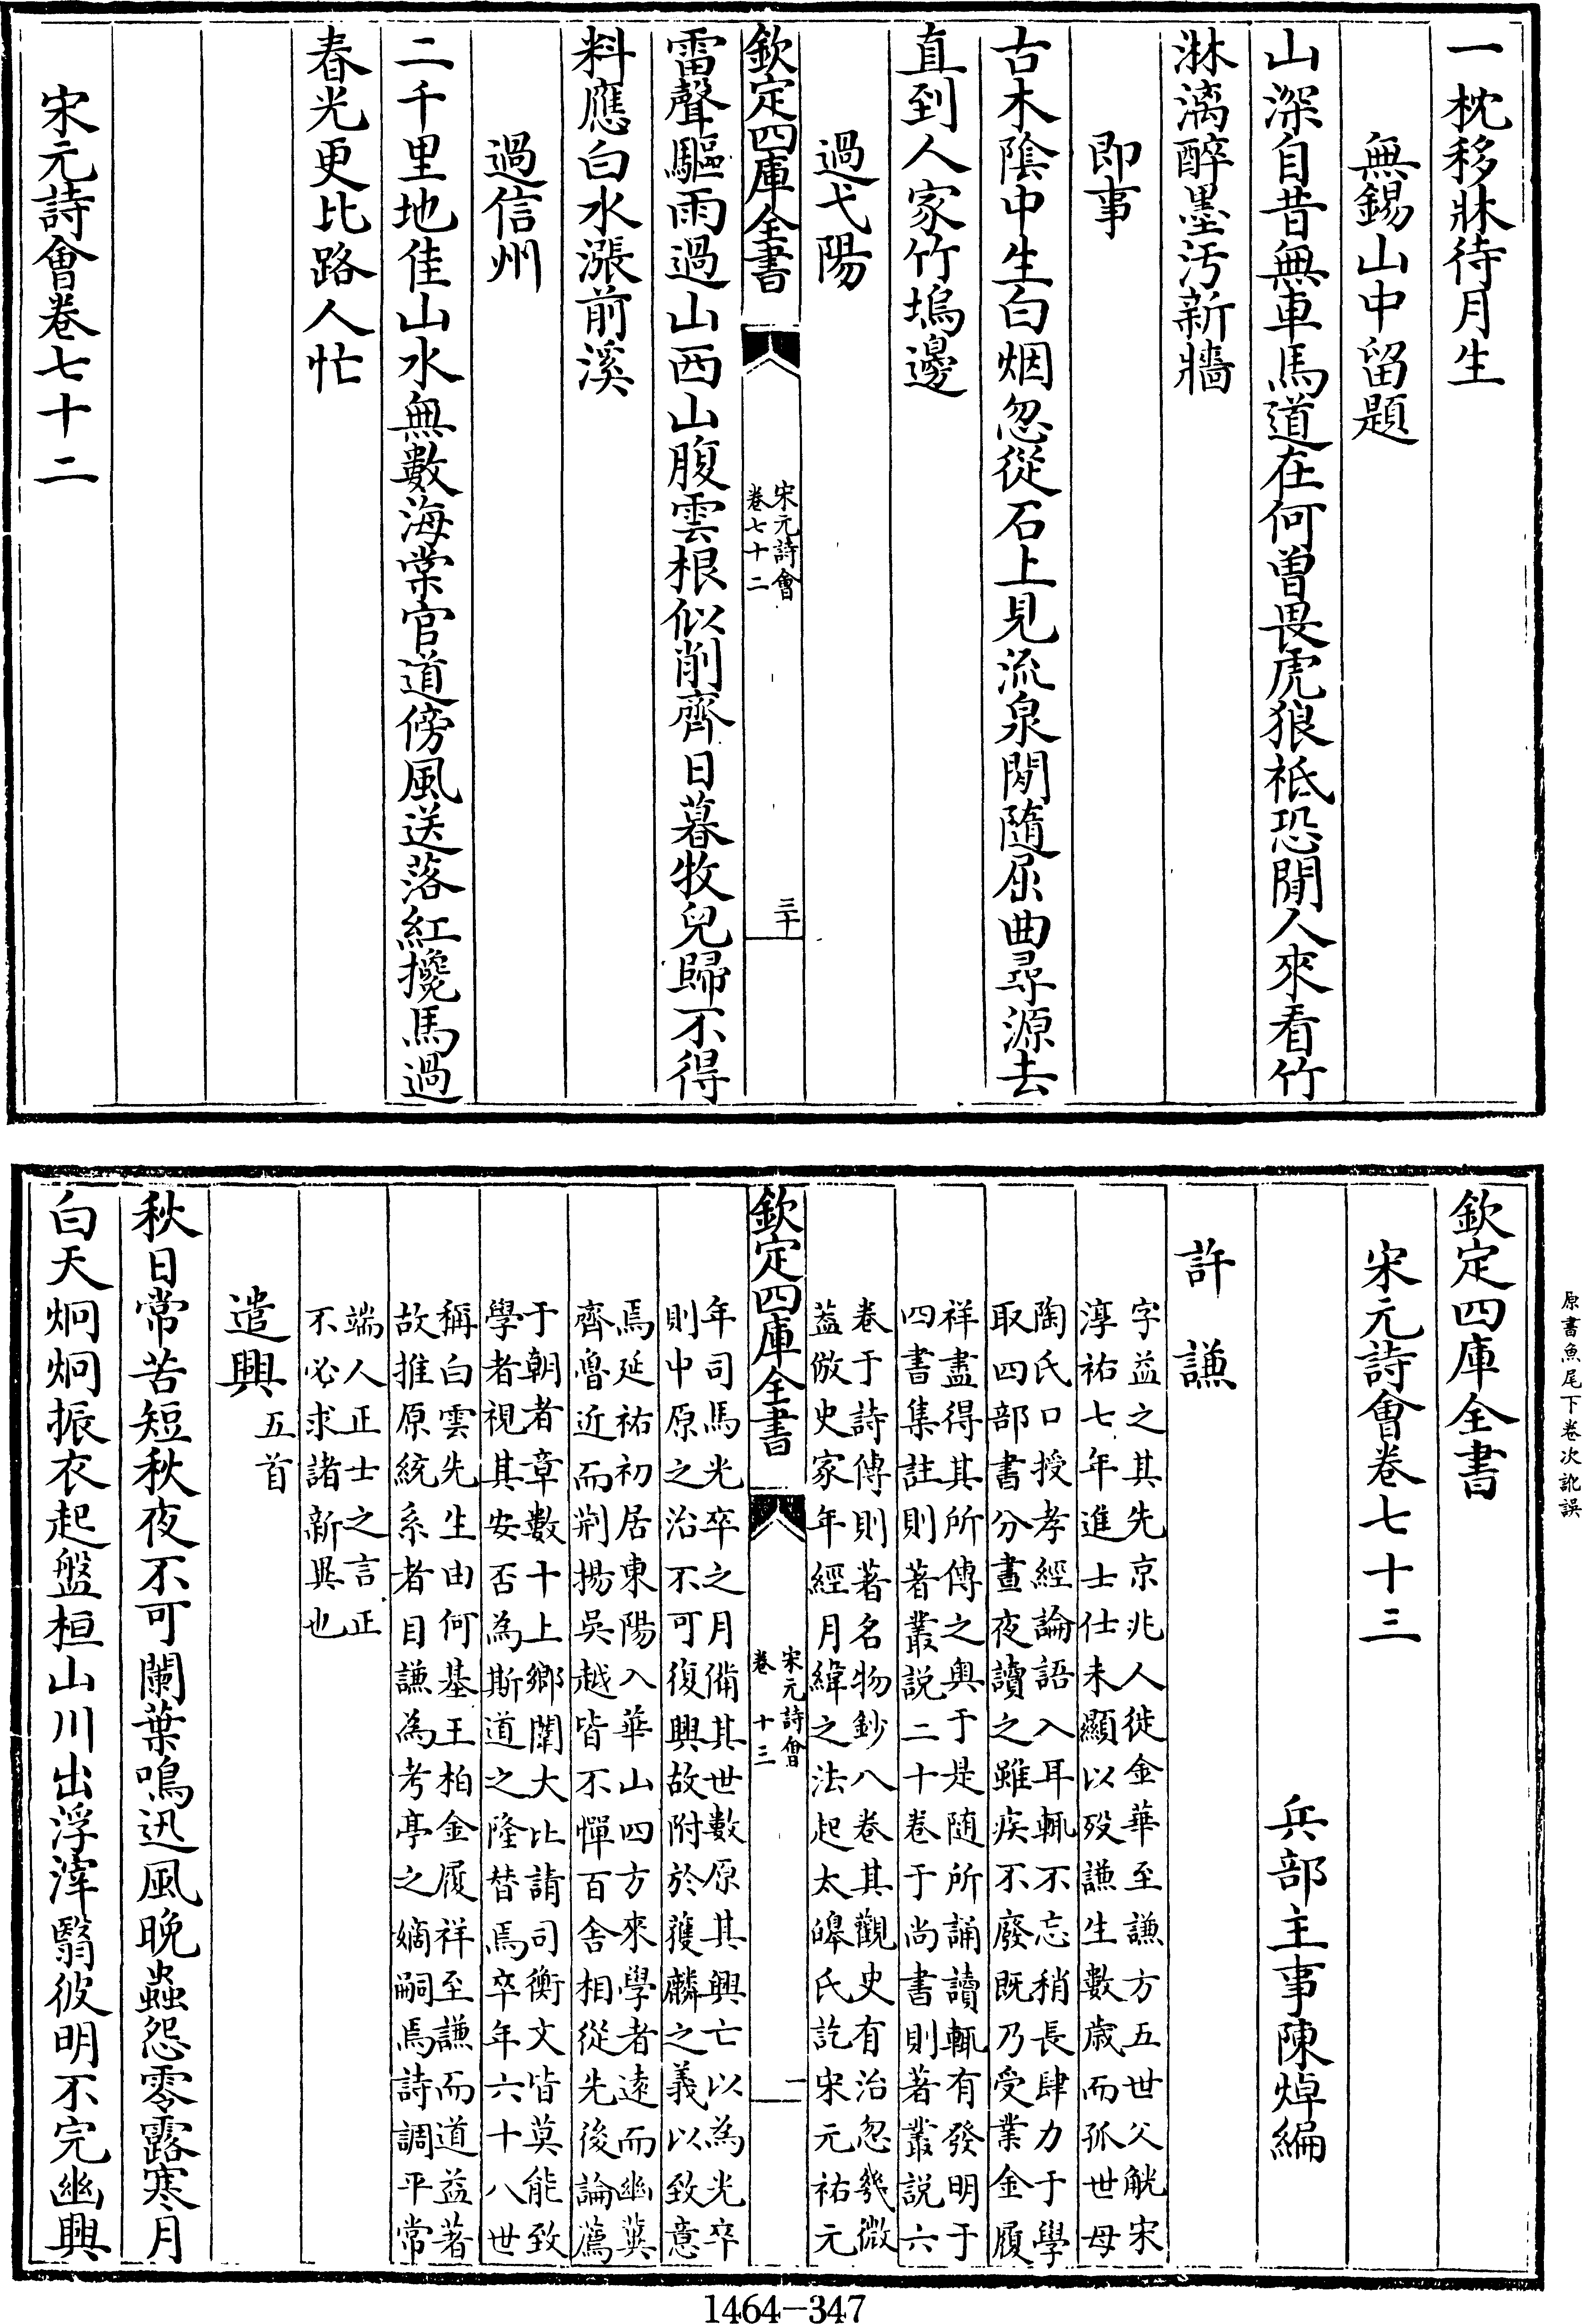 一枕移牀待月生
無錫山中留題
山深自昔無車馬道在何曽畏虎狼袛恐閒人來看竹
淋漓醉墨汚新牆
即事
古木陰中生白烟忽從石上見流泉閒隨屈曲尋源去
直到人家竹塢邊
過弋陽
欽定四庫全書
宋元詩會
卷七十二
三十
雷聲驅雨過山西山腹雲根似削齊日暮牧兒歸不得
料應白水漲前溪
過信州
二千里地佳山水無數海棠官道傍風送落紅攙馬過
春光更比路人忙
宋元詩會卷七十二
原書魚尾下卷次訛誤
欽定四庫全書
宋元詩會卷七十三
兵部主事陳焯編
許謙
字益之其先京兆人徙金華至謙方五世父觥宋
淳祐七年進士仕未顯以殁謙生數歳而孤世母
陶氏口授孝經論語入耳輒不忘稍長肆力于學
取四部書分晝夜讀之雖疾不廢既乃受業金履
祥盡得其所傳之奥于是随所誦讀輒有發明于
四書集註則著叢説二十卷于尚書則著叢説六
卷于詩傳則著名物鈔八卷其觀史有治忽幾微
葢倣史家年經月緯之法起太皥氏訖宋元祐元
欽定四庫全書
宋元詩會
卷 十三
一
年司馬光卒之月備其世數原其興亡以為光卒
則中原之治不可復興故附於獲麟之義以致意
焉延祐初居東陽入華山四方來學者逺而幽冀
齊魯近而荆揚吳越皆不憚百舍相從先後論薦
于朝者章數十上鄉闈大比請司衡文皆莫能致
學者視其安否為斯道之隆替焉卒年六十八世
稱白雲先生由何基王柏金履祥至謙而道益著
故推原統系者目謙為考亭之嫡嗣焉詩調平常
端人正士之言正
不必求諸新異也
遣興五首
秋日常苦短秋夜不可闌葉鳴迅風晚蟲怨零露寒月
白天炯炯振衣起盤桓山川出浮滓翳彼明不完幽興
1464-347